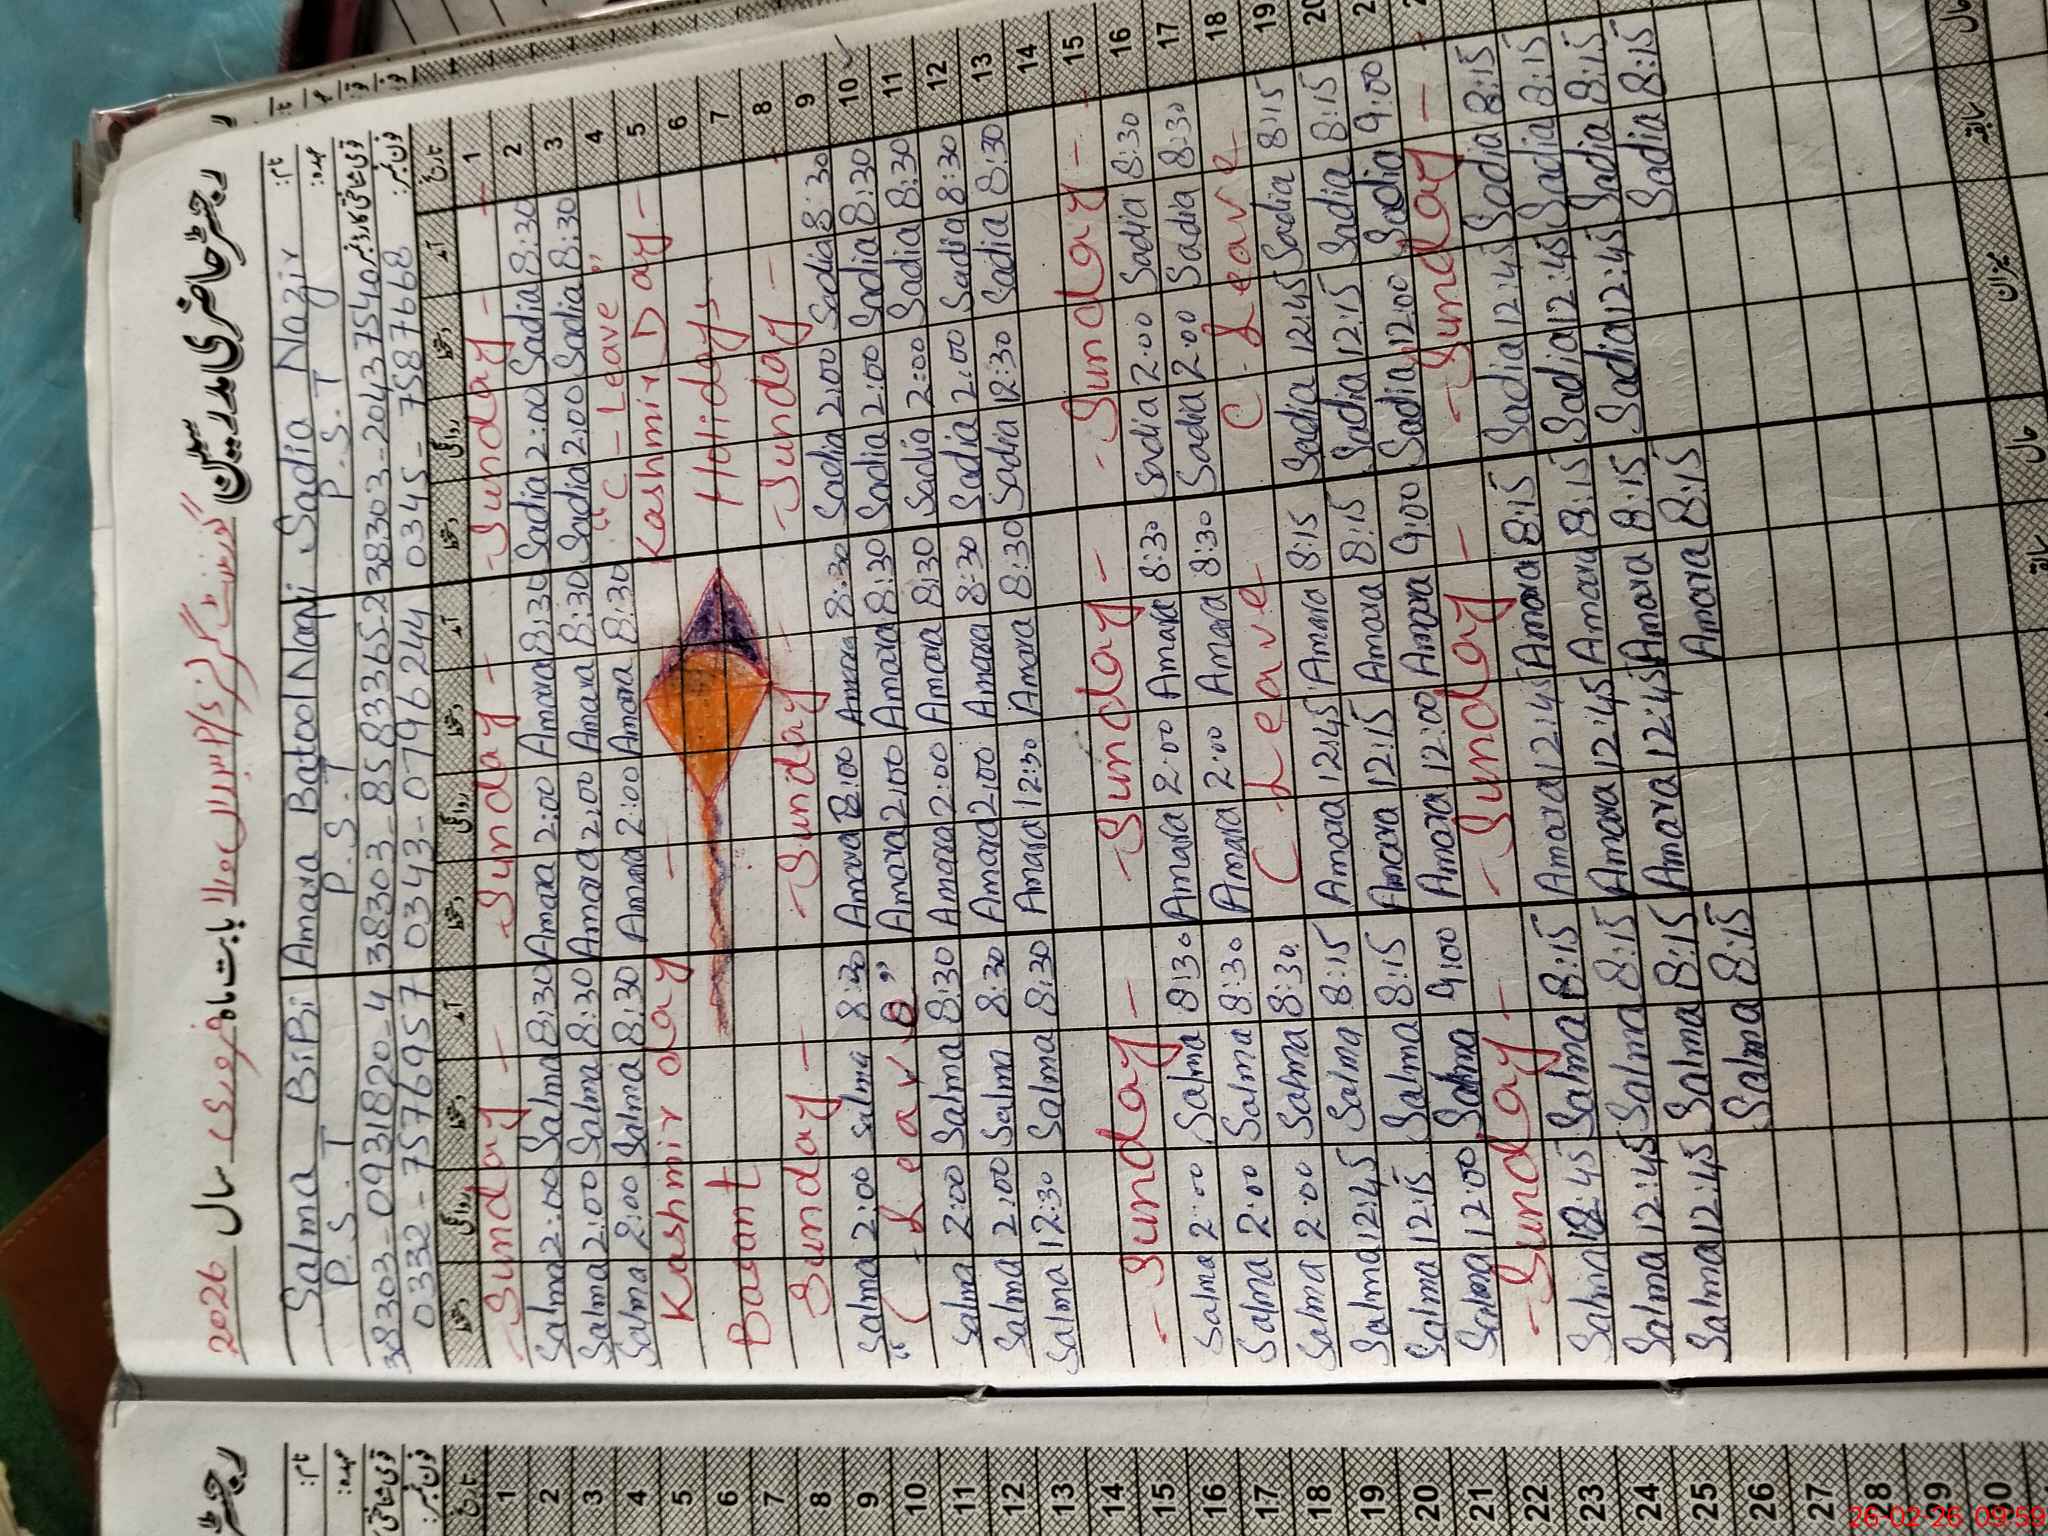 رجسٹر حاضری مدرسین
گورنمنٹ گرلز بابت ماہ فروری سال 2026
نام: Sadia Nazir Amara Batool Naqvi Salma BiBi
عہدہ: P.S.T P.S.T P.S.T
قومی شناختی کارڈ نمبر 38303-2043754 38303-8583365-2 38303-0931820-4
فون نمبر: 0345-7587668 0343-0796244 0332-7576957
تاریخ آمد دستخط روانگی دستخط آمد دستخط روانگی دستخط آمد دستخط روانگی دستخط
1 -Sunday- -Sunday- -Sunday-
2 8:30 Sadia 2:00 Sadia 8:30 Amara 2:00 Amara 8:30 Salma 2:00 Salma
3 8:30 Sadia 2:00 Sadia 8:30 Amara 2:00 Amara 8:30 Salma 2:00 Salma
4 "C-Leave" 8:30 Amara 2:00 Amara 8:30 Salma 2:00 Salma
5 Kashmir Day - Kashmir day
6 Holidays Basant
7
8 -Sunday- -Sunday- Sunday-
9 8:30 Sadia 2:00 Sadia 8:30 Amara 2:00 Amara 8:30 Salma 2:00 Salma
10 8:30 Sadia 2:00 Sadia 8:30 Amara 2:00 Amara "C-Leave"
11 8:30 Sadia 2:00 Sadia 8:30 Amara 2:00 Amara 8:30 Salma 2:00 Salma
12 8:30 Sadia 2:00 Sadia 8:30 Amara 2:00 Amara 8:30 Salma 2:00 Salma
13 8:30 Sadia 12:30 Sadia 8:30 Amara 12:30 Amara 8:30 Salma 12:30 Salma
14
15 -Sunday- -Sunday- -Sunday-
16 8:30 Sadia 2:00 Sadia 8:30 Amara 2:00 Amara 8:30 Salma 2:00 Salma
17 8:30 Sadia 2:00 Sadia 8:30 Amara 2:00 Amara 8:30 Salma 2:00 Salma
18 C.Leave C.Leave 8:30 Salma 2:00 Salma
19 8:15 Sadia 12:45 Sadia 8:15 Amara 12:45 Amara 8:15 Salma 12:45 Salma
20 8:15 Sadia 12:15 Sadia 8:15 Amara 12:15 Amara 8:15 Salma 12:15 Salma
9:00 Sadia 12:00 Sadia 9:00 Amara 12:00 Amara 9:00 Salma 12:00 Salma
-Sunday- -Sunday- -Sunday-
8:15 Sadia 12:45 Sadia 8:15 Amara 12:45 Amara 8:15 Salma 12:45 Salma
8:15 Sadia 12:45 Sadia 8:15 Amara 12:45 Amara 8:15 Salma 12:45 Salma
8:15 Sadia 12:45 Sadia 8:15 Amara 12:45 Amara 8:15 Salma 12:45 Salma
8:15 Sadia 8:15 Amara 8:15 Salma
سابقہ حال میزان سابقہ حال
نام:
عہدہ:
تاریخ
1
2
3
4
5
6
7
8
9
10
11
12
13
14
15
16
17
18
19
20
21
22
23
24
25
26
27
28
29
30
26-02-26 09:59